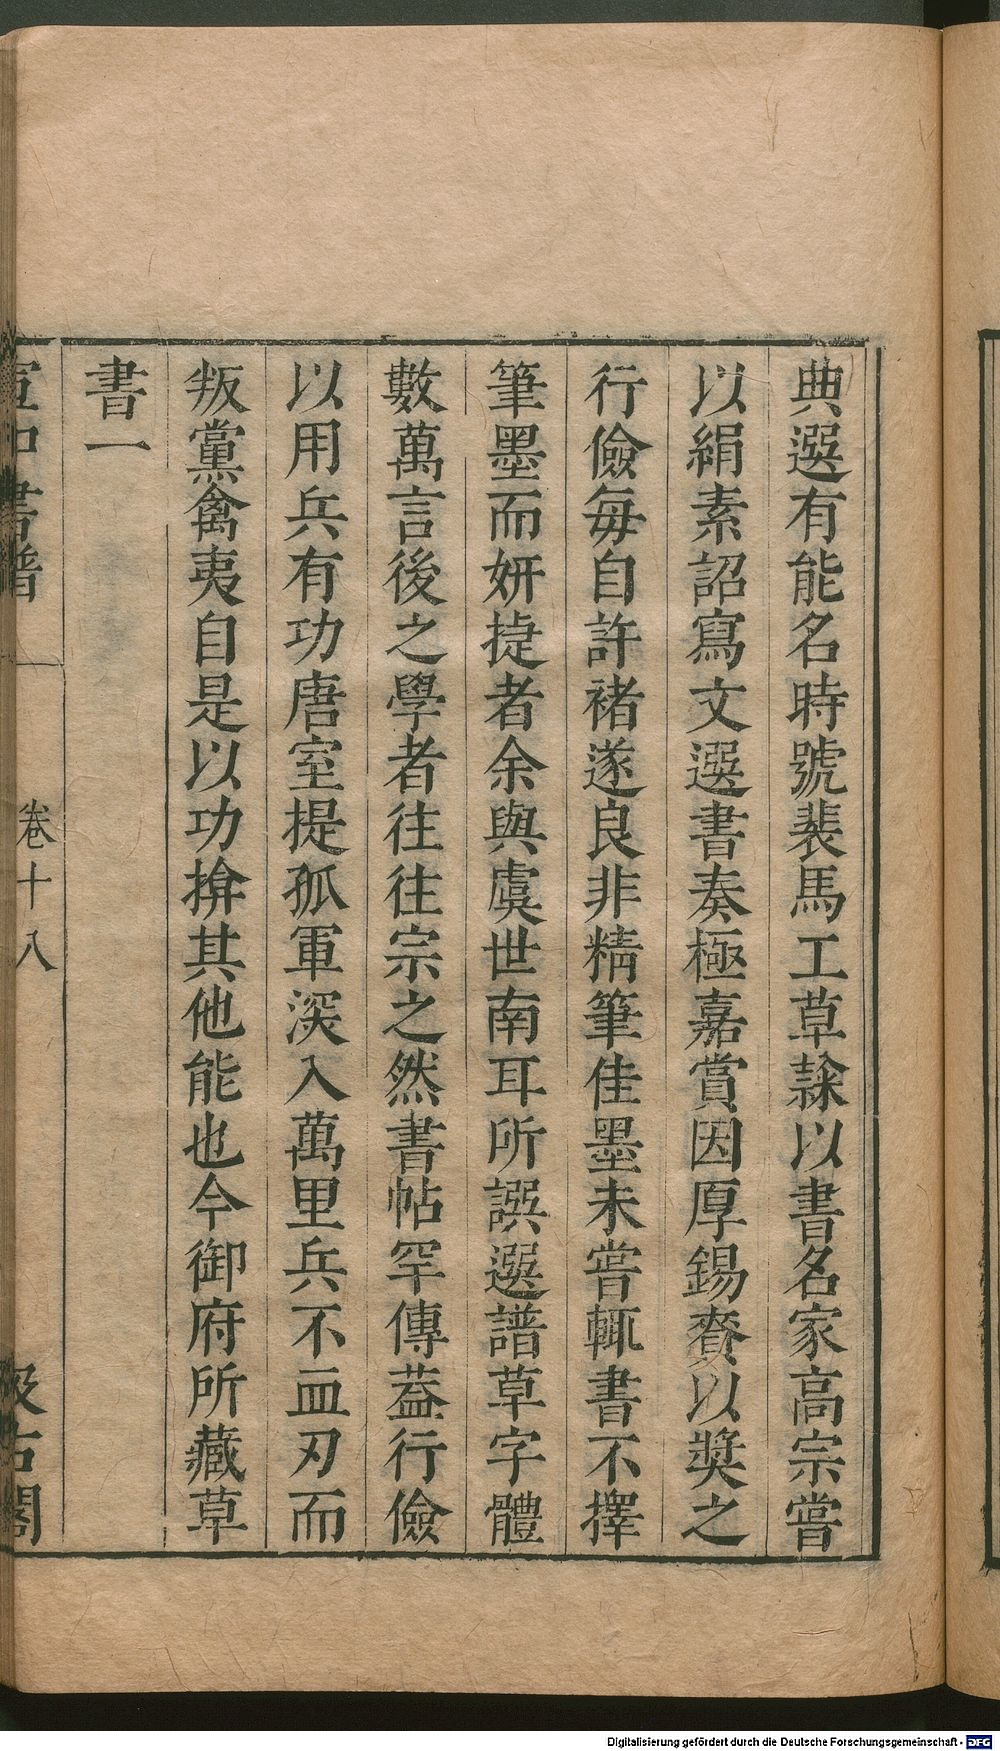 典選有能名時號裴馬工草隷以書名家高宗嘗
以絹素詔寫文選書奏極嘉賞因厚錫賚以奬之
行儉每自許褚遂良非精筆佳墨未嘗輒書不擇
筆墨而妍捷者余與虞世南耳所譔選譜草字體
數萬言後之學者往往宗之然書帖罕傳葢行儉
以用兵有功唐室提孤軍深入萬里兵不血刃而
叛黨禽夷自是以功揜其他能也今御府所藏草
書一
宣和書譜 卷十八 汲古閣
Digitalisierung gefördert durch die Deutsche Forschungsgemeinschaft - DFG